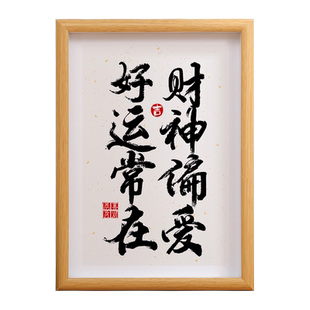 财神偏爱
好运常在
吉